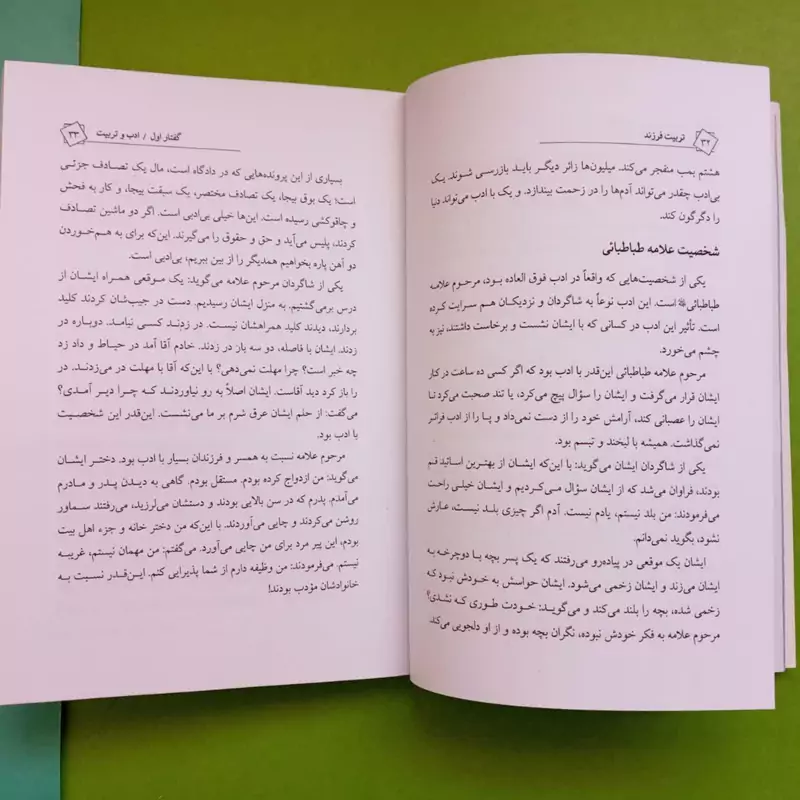 تربیت فرزند
۳۲
هشتم بمب منفجر می‌کند. میلیون‌ها زائر دیگر باید بازرسی شوند. یک
بی‌ادب چقدر می‌تواند آدم‌ها را در زحمت بیندازد. و یک با ادب می‌تواند دنیا
را دگرگون کند.
شخصیت علامه طباطبائی
یکی از شخصیت‌هایی که واقعاً در ادب فوق العاده بود، مرحوم علامه
طباطبائی است. این ادب نوعاً به شاگردان و نزدیکان هم سرایت کرده
است. تأثیر این ادب در کسانی که با ایشان نشست و برخاست داشتند، نیز به
چشم می‌خورد.
مرحوم علامه طباطبائی این‌قدر با ادب بود که اگر کسی ده ساعت در کنار
ایشان قرار می‌گرفت و ایشان را سؤال پیچ می‌کرد، یا تند صحبت می‌کرد تا
ایشان را عصبانی کند، آرامش خود را از دست نمی‌داد و پا را از ادب فراتر
نمی‌گذاشت. همیشه با لبخند و تبسم بود.
یکی از شاگردان ایشان می‌گوید: با این‌که ایشان از بهترین اساتید قم
بودند، فراوان می‌شد که از ایشان سؤال می‌کردیم و ایشان خیلی راحت
می‌فرمودند: من بلد نیستم، یادم نیست. آدم اگر چیزی بلد نیست، عارش
نشود، بگوید نمی‌دانم.
ایشان یک موقعی در پیاده‌رو می‌رفتند که یک پسر بچه با دوچرخه به
ایشان می‌زند و ایشان زخمی می‌شود. ایشان حواسش به خودش نبود که
زخمی شده، بچه را بلند می‌کند و می‌گوید: خودت طوری که نشدی؟
مرحوم علامه به فکر خودش نبوده، نگران بچه بوده و از او دلجویی می‌کند.
گفتار اول / ادب و تربیت
۳۳
بسیاری از این پرونده‌هایی که در دادگاه است، مال یک تصادف جزئی
است؛ یک بوق بیجا، یک تصادف مختصر، یک سبقت بیجا، و کار به فحش
و چاقوکشی رسیده است. این‌ها خیلی بی‌ادبی است. اگر دو ماشین تصادف
کردند، پلیس می‌آید و حق و حقوق را می‌گیرند. این‌که برای به هم‌خوردن
دو آهن پاره بخواهیم همدیگر را از بین ببریم، بی‌ادبی است.
یکی از شاگردان مرحوم علامه می‌گوید: یک موقعی همراه ایشان از
درس برمی‌گشتیم. به منزل ایشان رسیدیم. دست در جیب‌شان کردند کلید
بردارند، دیدند کلید همراهشان نیست. در زدند کسی نیامد. دوباره در
زدند. ایشان با فاصله، دو سه بار در زدند. خادم آقا آمد در حیاط و داد زد
چه خبر است؟ چرا مهلت نمی‌دهی؟ با این‌که آقا با مهلت در می‌زدند. در
را باز کرد دید آقاست. ایشان اصلاً به رو نیاوردند که چرا دیر آمدی؟
می‌گفت: از حلم ایشان عرق شرم بر ما می‌نشست. این‌قدر این شخصیت
با ادب بود.
مرحوم علامه نسبت به همسر و فرزندان بسیار با ادب بود. دختر ایشان
می‌گوید: من ازدواج کرده بودم. مستقل بودم. گاهی به دیدن پدر و مادرم
می‌آمدم. پدرم که در سن بالایی بودند و دستشان می‌لرزید، می‌رفتند سماور
روشن می‌کردند و چایی می‌آوردند. با این‌که من دختر خانه و جزء اهل بیت
بودم، این پیر مرد برای من چایی می‌آورد. می‌گفتم: من مهمان نیستم، غریبه
نیستم. می‌فرمودند: من وظیفه دارم از شما پذیرایی کنم. این‌قدر نسبت به
خانوادشان مؤدب بودند!